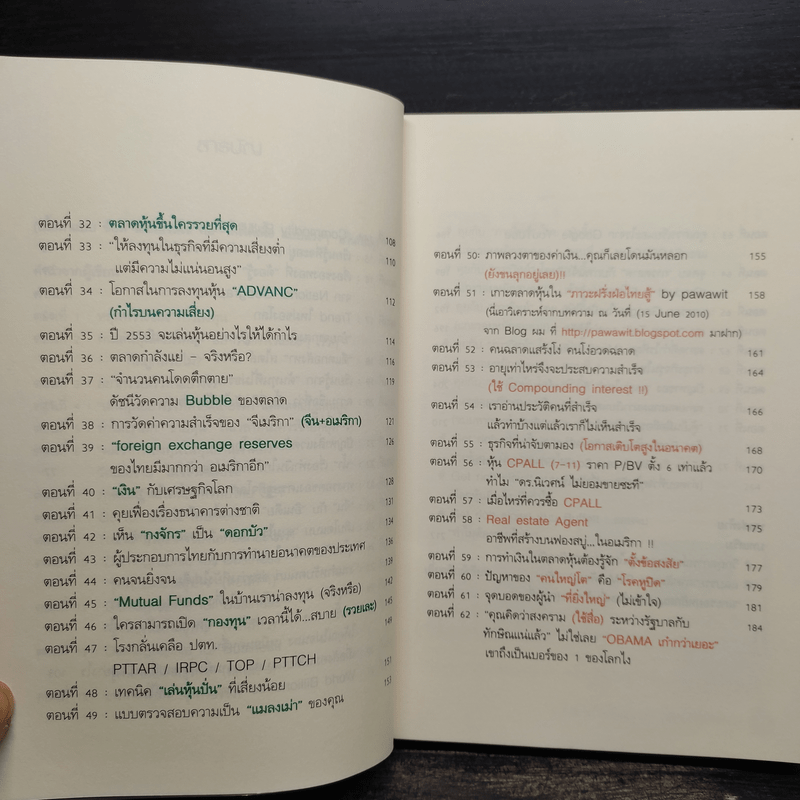 ตอนที่ 32 : ตลาดหุ้นขึ้นใครรวยที่สุด 108
ตอนที่ 33 : "ให้ลงทุนในธุรกิจที่มีความเสี่ยงต่ำ 110
แต่มีความไม่แน่นอนสูง"
ตอนที่ 34 : โอกาสในการลงทุนหุ้น "ADVANC" 112
(กำไรบนความเสี่ยง)
ตอนที่ 35 : ปี 2553 จะเล่นหุ้นอย่างไรให้ได้กำไร 114
ตอนที่ 36 : ตลาดกำลังแย่ - จริงหรือ? 116
ตอนที่ 37 : "จำนวนคนโดดตึกตาย" 119
ดัชนีวัดความ Bubble ของตลาด
ตอนที่ 38 : การวัดค่าความสำเร็จของ "จีเมริกา" (จีน+อเมริกา) 121
ตอนที่ 39 : "foreign exchange reserves 126
ของไทยมีมากกว่า อเมริกาอีก"
ตอนที่ 40 : "เงิน" กับเศรษฐกิจโลก 128
ตอนที่ 41 : คุยเฟื่องเรื่องธนาคารต่างชาติ 131
ตอนที่ 42 : เห็น "กงจักร" เป็น "ดอกบัว" 134
ตอนที่ 43 : ผู้ประกอบการไทยกับการทำนายอนาคตของประเทศ 136
ตอนที่ 44 : คนจนยิ่งจน 139
ตอนที่ 45 : "Mutual Funds" ในบ้านเราน่าลงทุน (จริงหรือ) 142
ตอนที่ 46 : ใครสามารถเปิด "กองทุน" เวลานี้ได้...สบาย (รวยเละ) 145
ตอนที่ 47 : โรงกลั่นเครือ ปตท. 149
PTTAR / IRPC / TOP / PTTCH
ตอนที่ 48 : เทคนิค "เล่นหุ้นปั่น" ที่เสี่ยงน้อย 151
ตอนที่ 49 : แบบตรวจสอบความเป็น "แมลงเม่า" ของคุณ 153
ตอนที่ 50: ภาพลวงตาของค่าเงิน...คุณก็เลยโดนมันหลอก 155
(ยังขนลุกอยู่เลย)!!
ตอนที่ 51 : เกาะตลาดหุ้นใน "ภาวะฝรั่งฝ่อไทยสู้" by pawawit 158
(นี่เอาวิเคราะห์จากบทความ ณ วันที่ (15 June 2010)
จาก Blog ผม ที่ http://pawawit.blogspot.com มาฝาก)
ตอนที่ 52 : คนฉลาดแสร้งโง่ คนโง่อวดฉลาด 161
ตอนที่ 53 : อายุเท่าไหร่จึงจะประสบความสำเร็จ 164
(ใช้ Compounding interest !!)
ตอนที่ 54 : เราอ่านประวัติคนที่สำเร็จ 166
แล้วทำบ้างแต่แล้วเราก็ไม่เห็นสำเร็จ
ตอนที่ 55 : ธุรกิจที่น่าจับตามอง (โอกาสเติบโตสูงในอนาคต) 168
ตอนที่ 56 : หุ้น CPALL (7-11) ราคา P/BV ตั้ง 6 เท่าแล้ว 170
ทำไม "ดร.นิเวศน์ ไม่ยอมขายซะที"
ตอนที่ 57 : เมื่อไหร่ที่ควรซื้อ CPALL 173
ตอนที่ 58 : Real estate Agent 175
อาชีพที่สร้างบนฟองสบู่...ในอเมริกา !!
ตอนที่ 59 : การทำเงินในตลาดหุ้นต้องรู้จัก "ตั้งข้อสงสัย" 177
ตอนที่ 60 : ปัญหาของ "คนใหญ่โต" คือ "โรคหูปิด" 179
ตอนที่ 61 : จุดบอดของผู้นำ "ที่ยิ่งใหญ่" (ไม่เข้าใจ) 181
ตอนที่ 62 : "คุณคิดว่าสงคราม (ใช้สื่อ) ระหว่างรัฐบาลกับ 184
ทักษิณแน่แล้ว" ไม่ใช่เลย "OBAMA เก๋ากว่าเยอะ"
เขาถึงเป็นเบอร์ของ 1 ของโลกไง